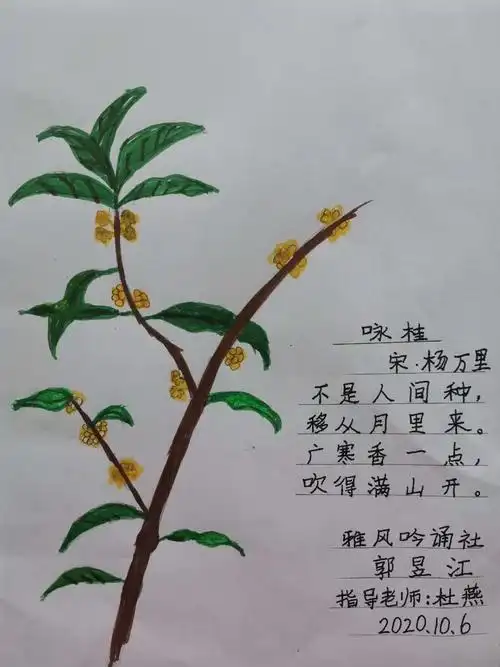 咏桂
宋·杨万里
不是人间种，
移从月里来。
广寒香一点，
吹得满山开。
雅风吟诵社
郭昱江
指导老师：杜燕
2020.10.6